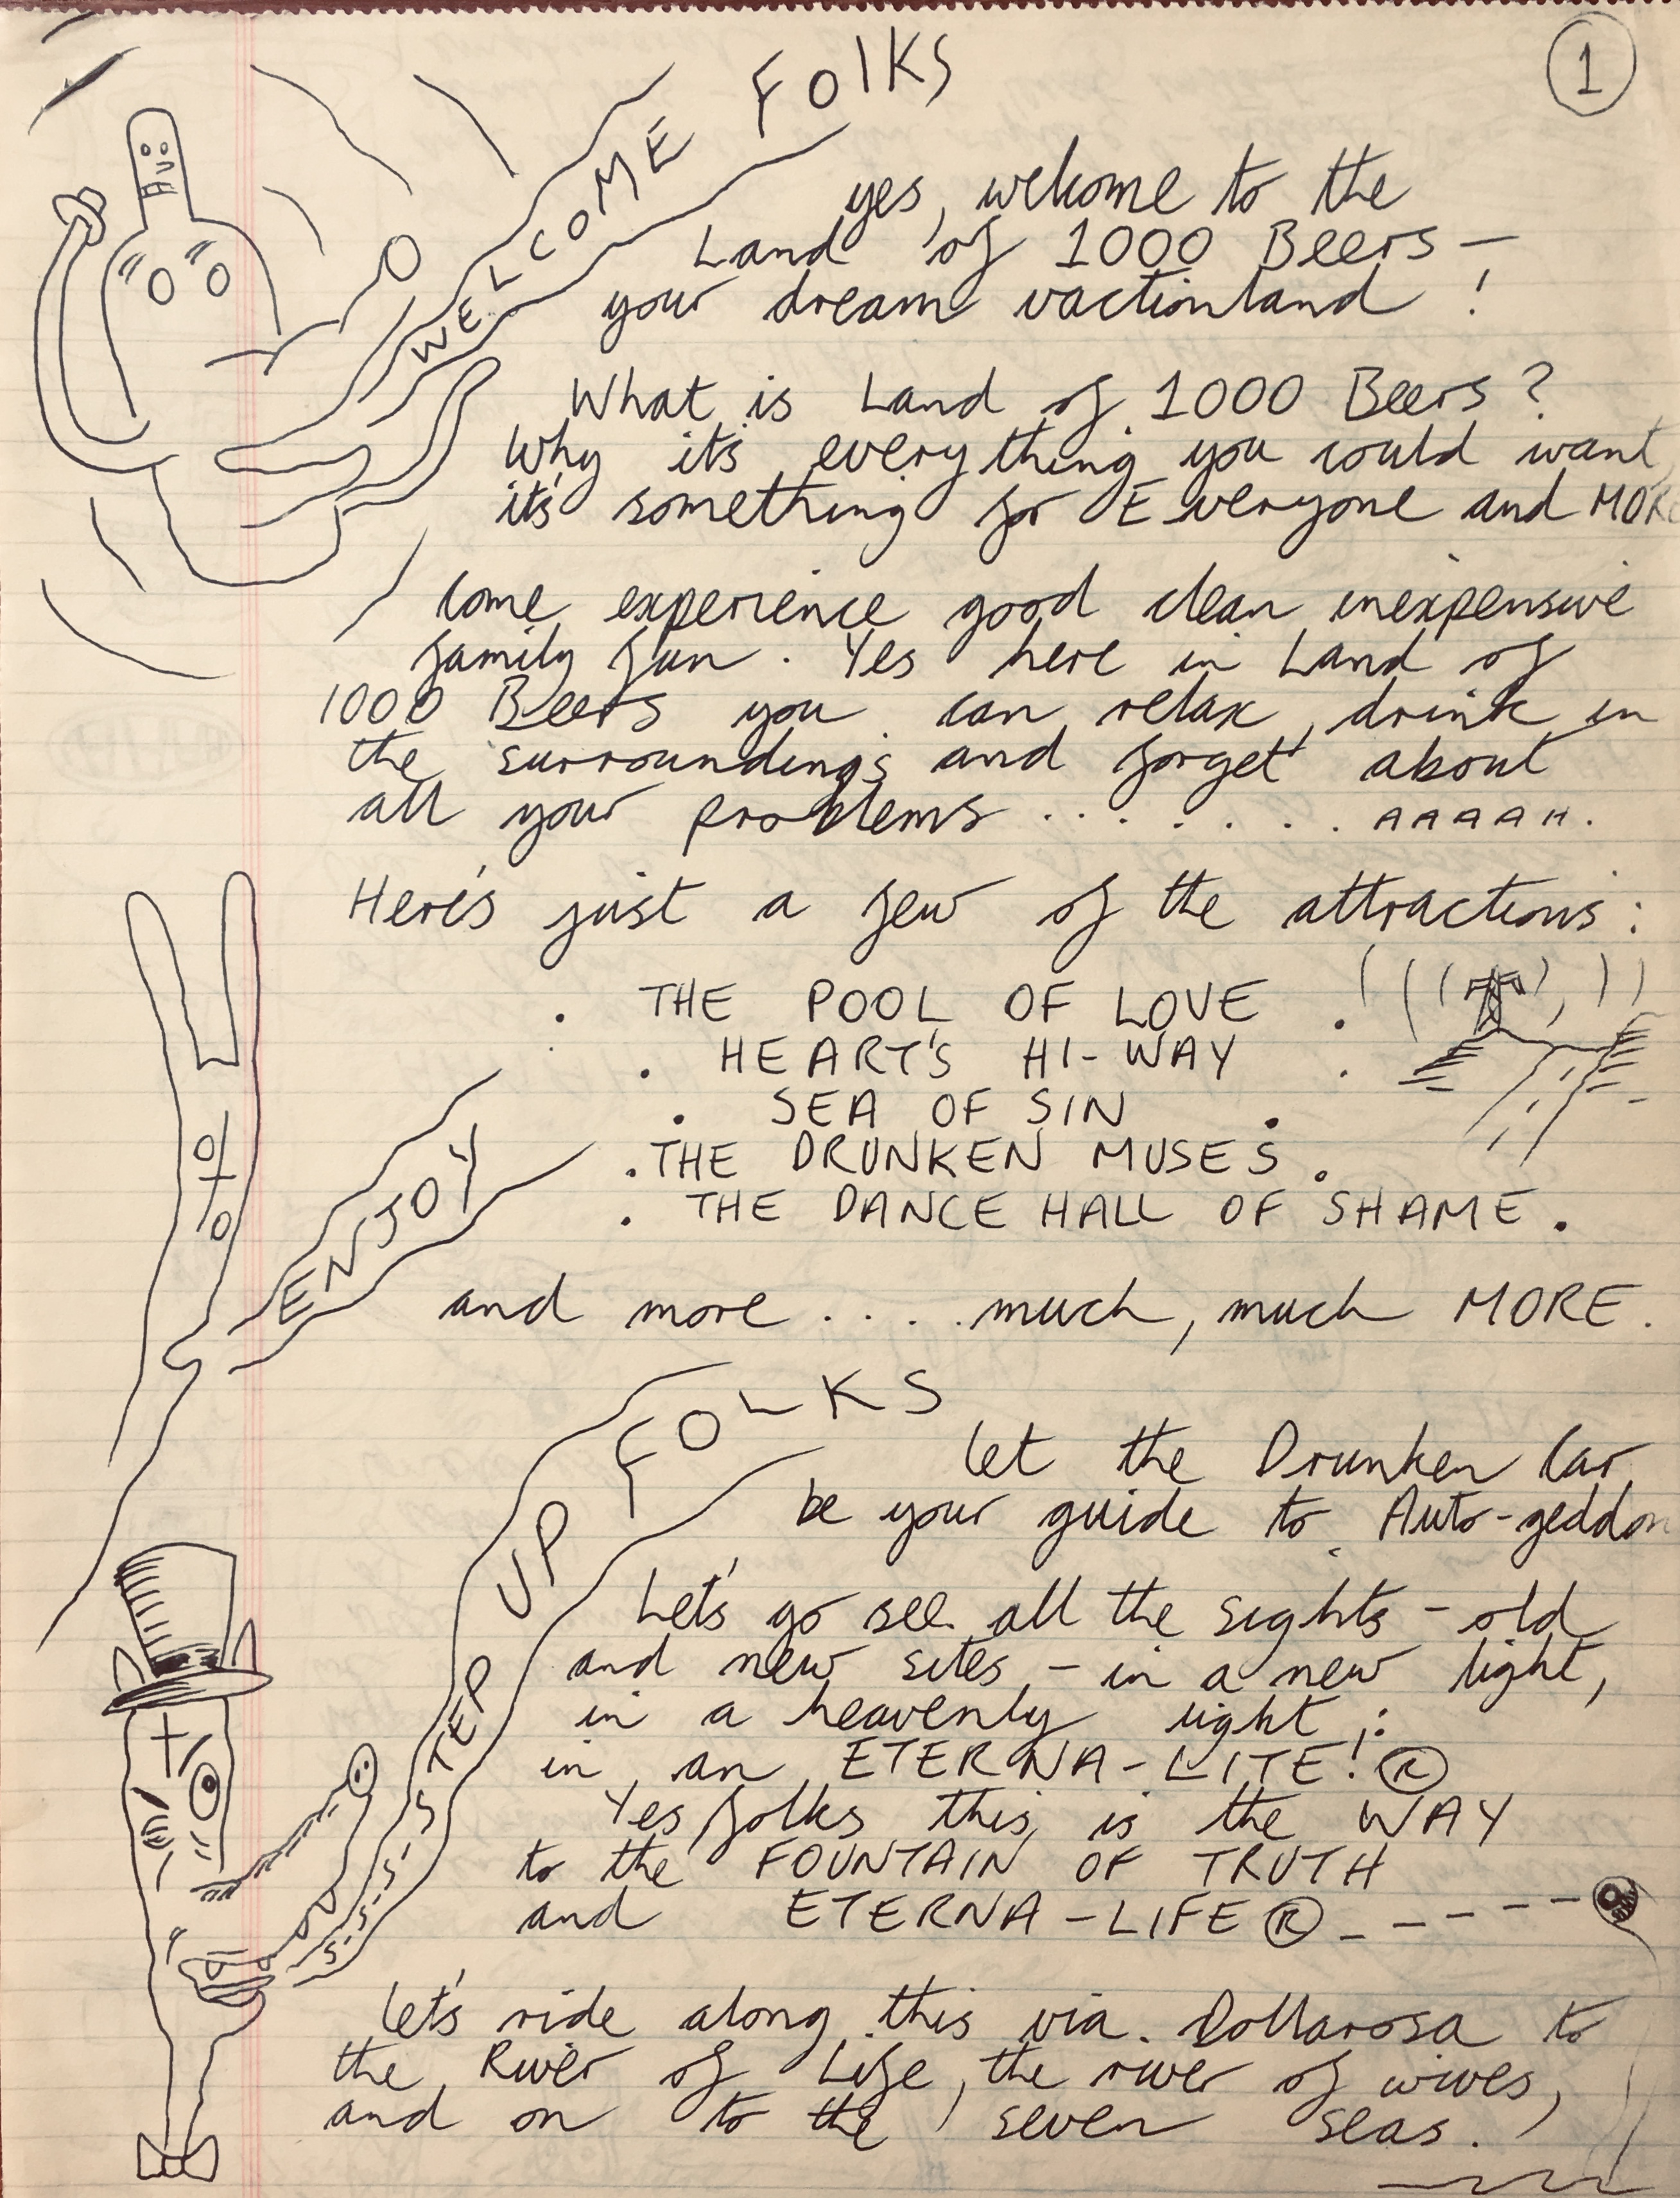 1
WELCOME FOLKS
yes, welcome to the
Land of 1000 Beers —
your dream vactionland !
What is Land of 1000 Beers?
Why it's everything you could want,
it's something for Everyone and MORE
Come experience good clean inexpensive
family fun. Yes here in Land of
1000 Beers you can relax, drink in
the surroundings and forget about
all your problems ........ AAAAH.
Here's just a few of the attractions:
. THE POOL OF LOVE .
. HEART'S HI-WAY .
. SEA OF SIN .
. THE DRUNKEN MUSES .
. THE DANCE HALL OF SHAME .
ENJOY
and more .... much, much MORE.
S-S-S-S-STEP UP FOLKS
let the Drunken Car
be your guide to Auto-geddon
Let's go see all the sights - old
and new sites - in a new light,
in a heavenly light ;:
in an ETERNA-LITE! ®
Yes folks this is the WAY
to the FOUNTAIN OF TRUTH
and ETERNA-LIFE ® - - - - -
let's ride along this via Dollarosa to
the River of Life, the river of wives,
and on to the seven seas.